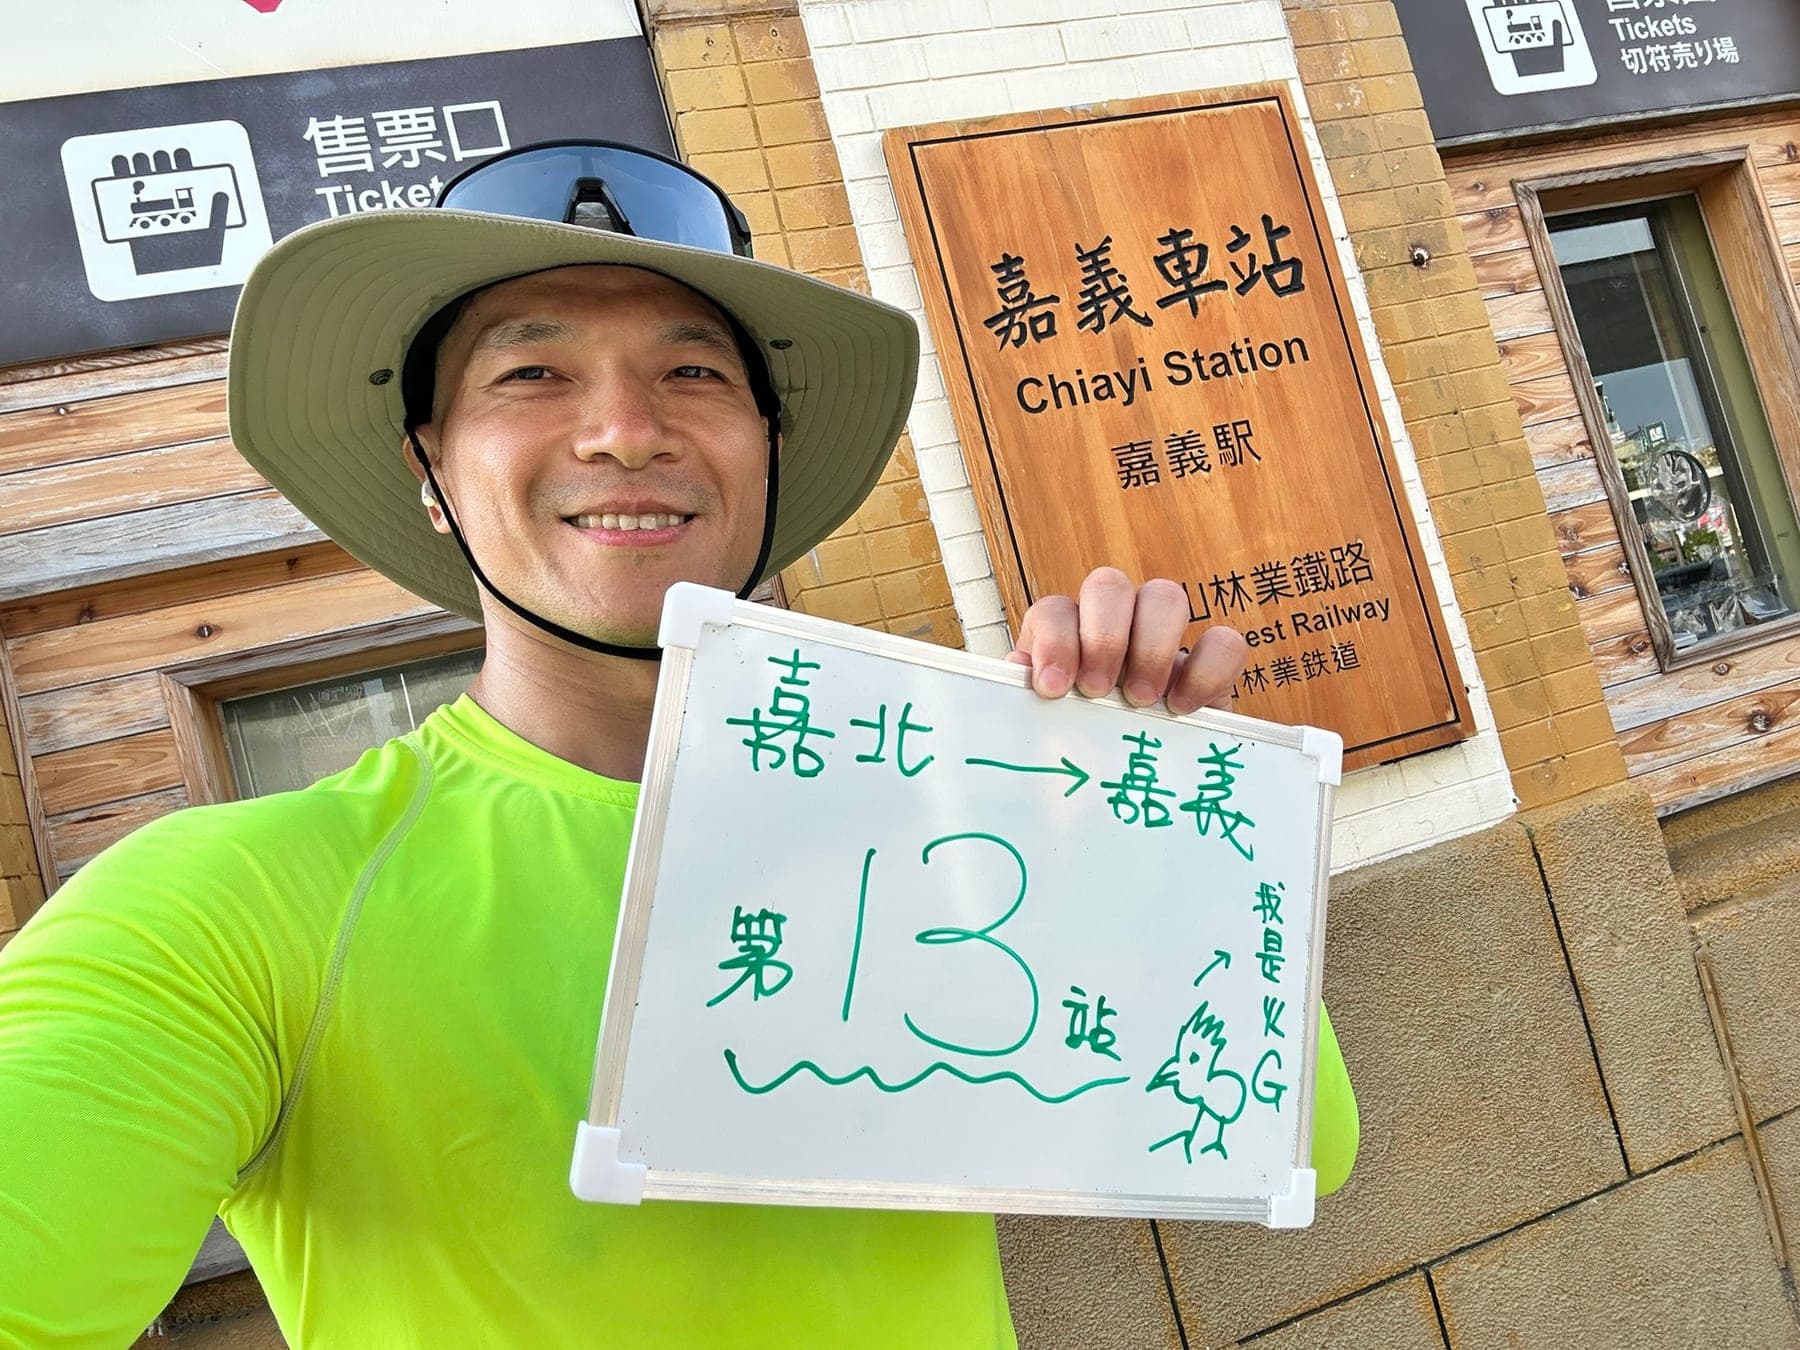 售票口
Ticket
Tickets
切符売り場
嘉義車站
Chiayi Station
嘉義駅
山林業鐵路
est Railway
林業鉄道
嘉北→嘉義
第13站
我是火G